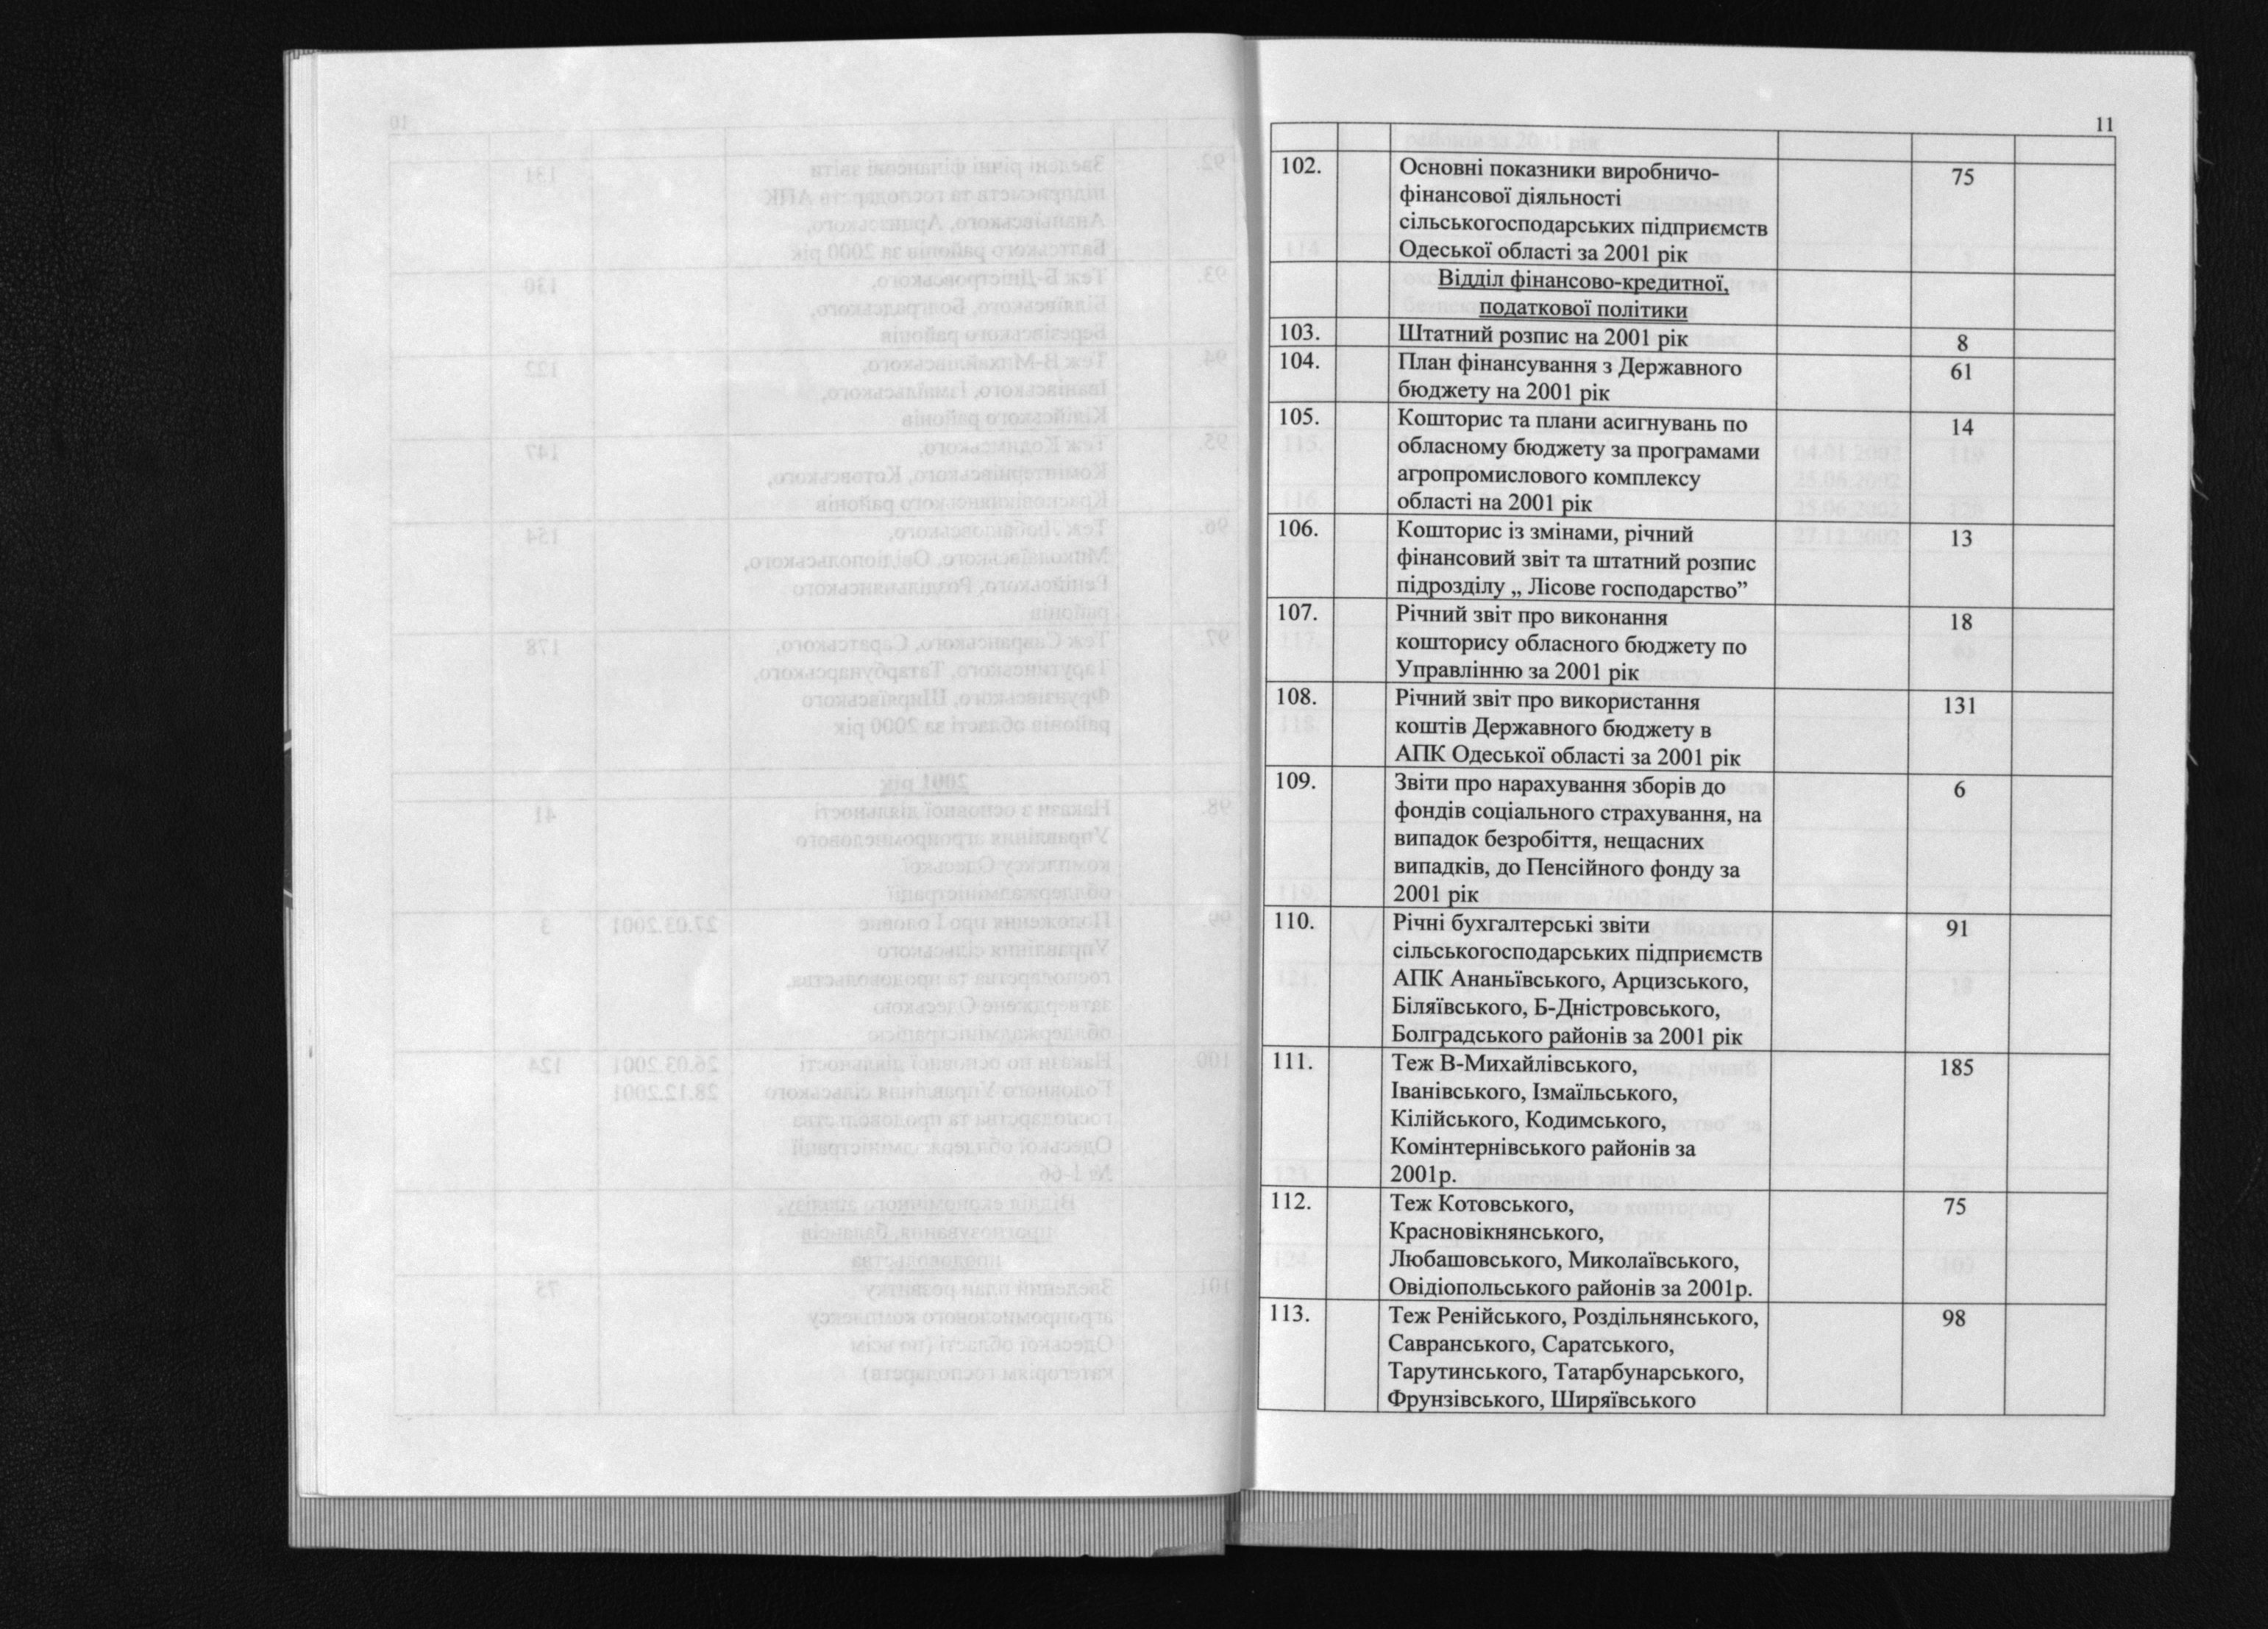 11
102.
Основні показники виробничо-
75
фінансової діяльності
сільськогосподарських підприємств
Одеської області за 2001 рік
Відділ фінансово-кредитної,
податкової політики
103.
Штатний розпис на 2001 рік
8
104.
План фінансування з Державного
61
бюджету на 2001 рік
105.
Кошторис та плани асигнувань по
14
обласному бюджету за програмами
агропромислового комплексу
області на 2001 рік
106.
Кошторис із змінами, річний
13
фінансовий звіт та штатний розпис
підрозділу „ Лісове господарство”
107.
Річний звіт про виконання
18
кошторису обласного бюджету по
Управлінню за 2001 рік
108.
Річний звіт про використання
131
коштів Державного бюджету в
АПК Одеської області за 2001 рік
109.
Звіти про нарахування зборів до
6
фондів соціального страхування, на
випадок безробіття, нещасних
випадків, до Пенсійного фонду за
2001 рік
110.
Річні бухгалтерські звіти
91
сільськогосподарських підприємств
АПК Ананьївського, Арцизського,
Біляївського, Б-Дністровського,
Болградського районів за 2001 рік
111.
Теж В-Михайлівського,
185
Іванівського, Ізмаїльського,
Кілійського, Кодимського,
Комінтернівського районів за
2001р.
112.
Теж Котовського,
75
Красновікнянського,
Любашовського, Миколаївського,
Овідіопольського районів за 2001р.
113.
Теж Ренійського, Роздільнянського,
98
Савранського, Саратського,
Тарутинського, Татарбунарського,
Фрунзівського, Ширяївського